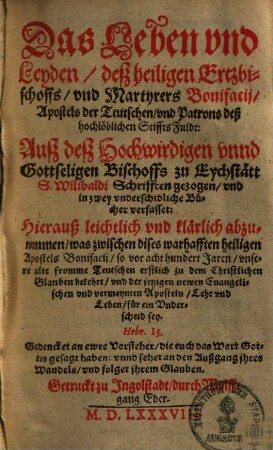 Das Leben vnd
Leyden / deß heiligen Ertzbi-
schoffs / vnd Martyrers Bonifacij /
Apostels der Teutschen / vnd Patrons deß
hochlöblichen Stiffts Fuld:
Auß deß Hochwirdigen vnnd
Gottseligen Bischoffs zu Eychstätt
S. Wilibaldi Schrifften gezogen / vnd
in zwey vnderschidliche Bü-
cher verfasset:
Hierauß leichtlich vnd klärlich abzu-
nemmen / was zwischen dises warhafften heiligen
Apostels Bonifacii / so vor acht hundert Jaren / vnse-
re alte fromme Teutschen erstlich zu dem Christlichen
Glauben bekehrt / vnd der jetzigen newen Euangeli-
schen vnd vermeynten Aposteln / Lehr vnd
Leben / für ein Vnder-
scheid sey.
Hebr. 13.
Gedencket an ewre Vorsteher / die euch das Wort Got-
tes gesagt haben: vnnd sehet an den Außgang jhres
Wandels / vnd folget jhrem Glauben.
Getruckt zu Ingolstatt / durch Wolff-
gang Eder.